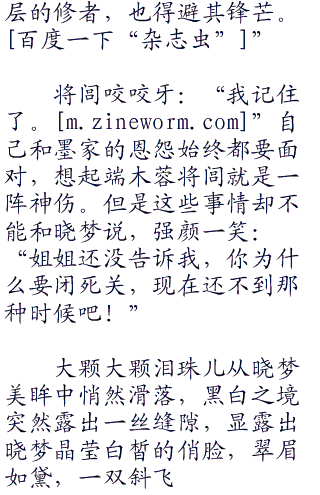 层的修者，也得避其锋芒。
[百度一下“杂志虫”]”
将闾咬咬牙：“我记住
了。[m.zineworm.com]”自
己和墨家的恩怨始终都要面
对，想起端木蓉将闾就是一
阵神伤。但是这些事情却不
能和晓梦说，强颜一笑：
“姐姐还没告诉我，你为什
么要闭死关，现在还不到那
种时候吧！”
大颗大颗泪珠儿从晓梦
美眸中悄然滑落，黑白之境
突然露出一丝缝隙，显露出
晓梦晶莹白皙的俏脸，翠眉
如黛，一双斜飞